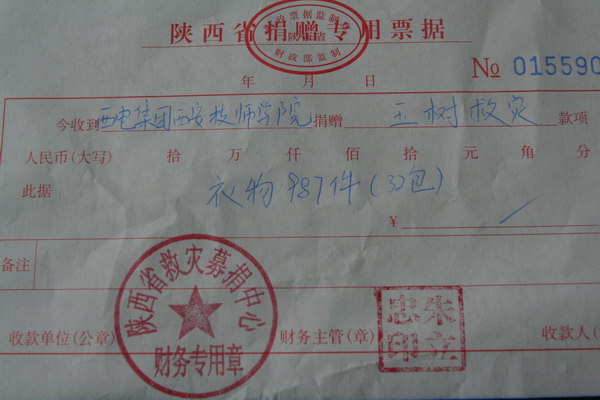 陕西省捐赠专用票据
政票据监制
陕西省
财政部监制
年 月 日 № 015590
今收到 西电集团西安技师学院 捐赠 玉树救灾 款项
人民币(大写) 拾 万 仟 佰 拾 元 角 分
此据 衣物987件(32包)
¥
备注
陕西省救灾募捐中心
财务专用章
朱立忠印
收款单位(公章) 财务主管(章) 收款人(